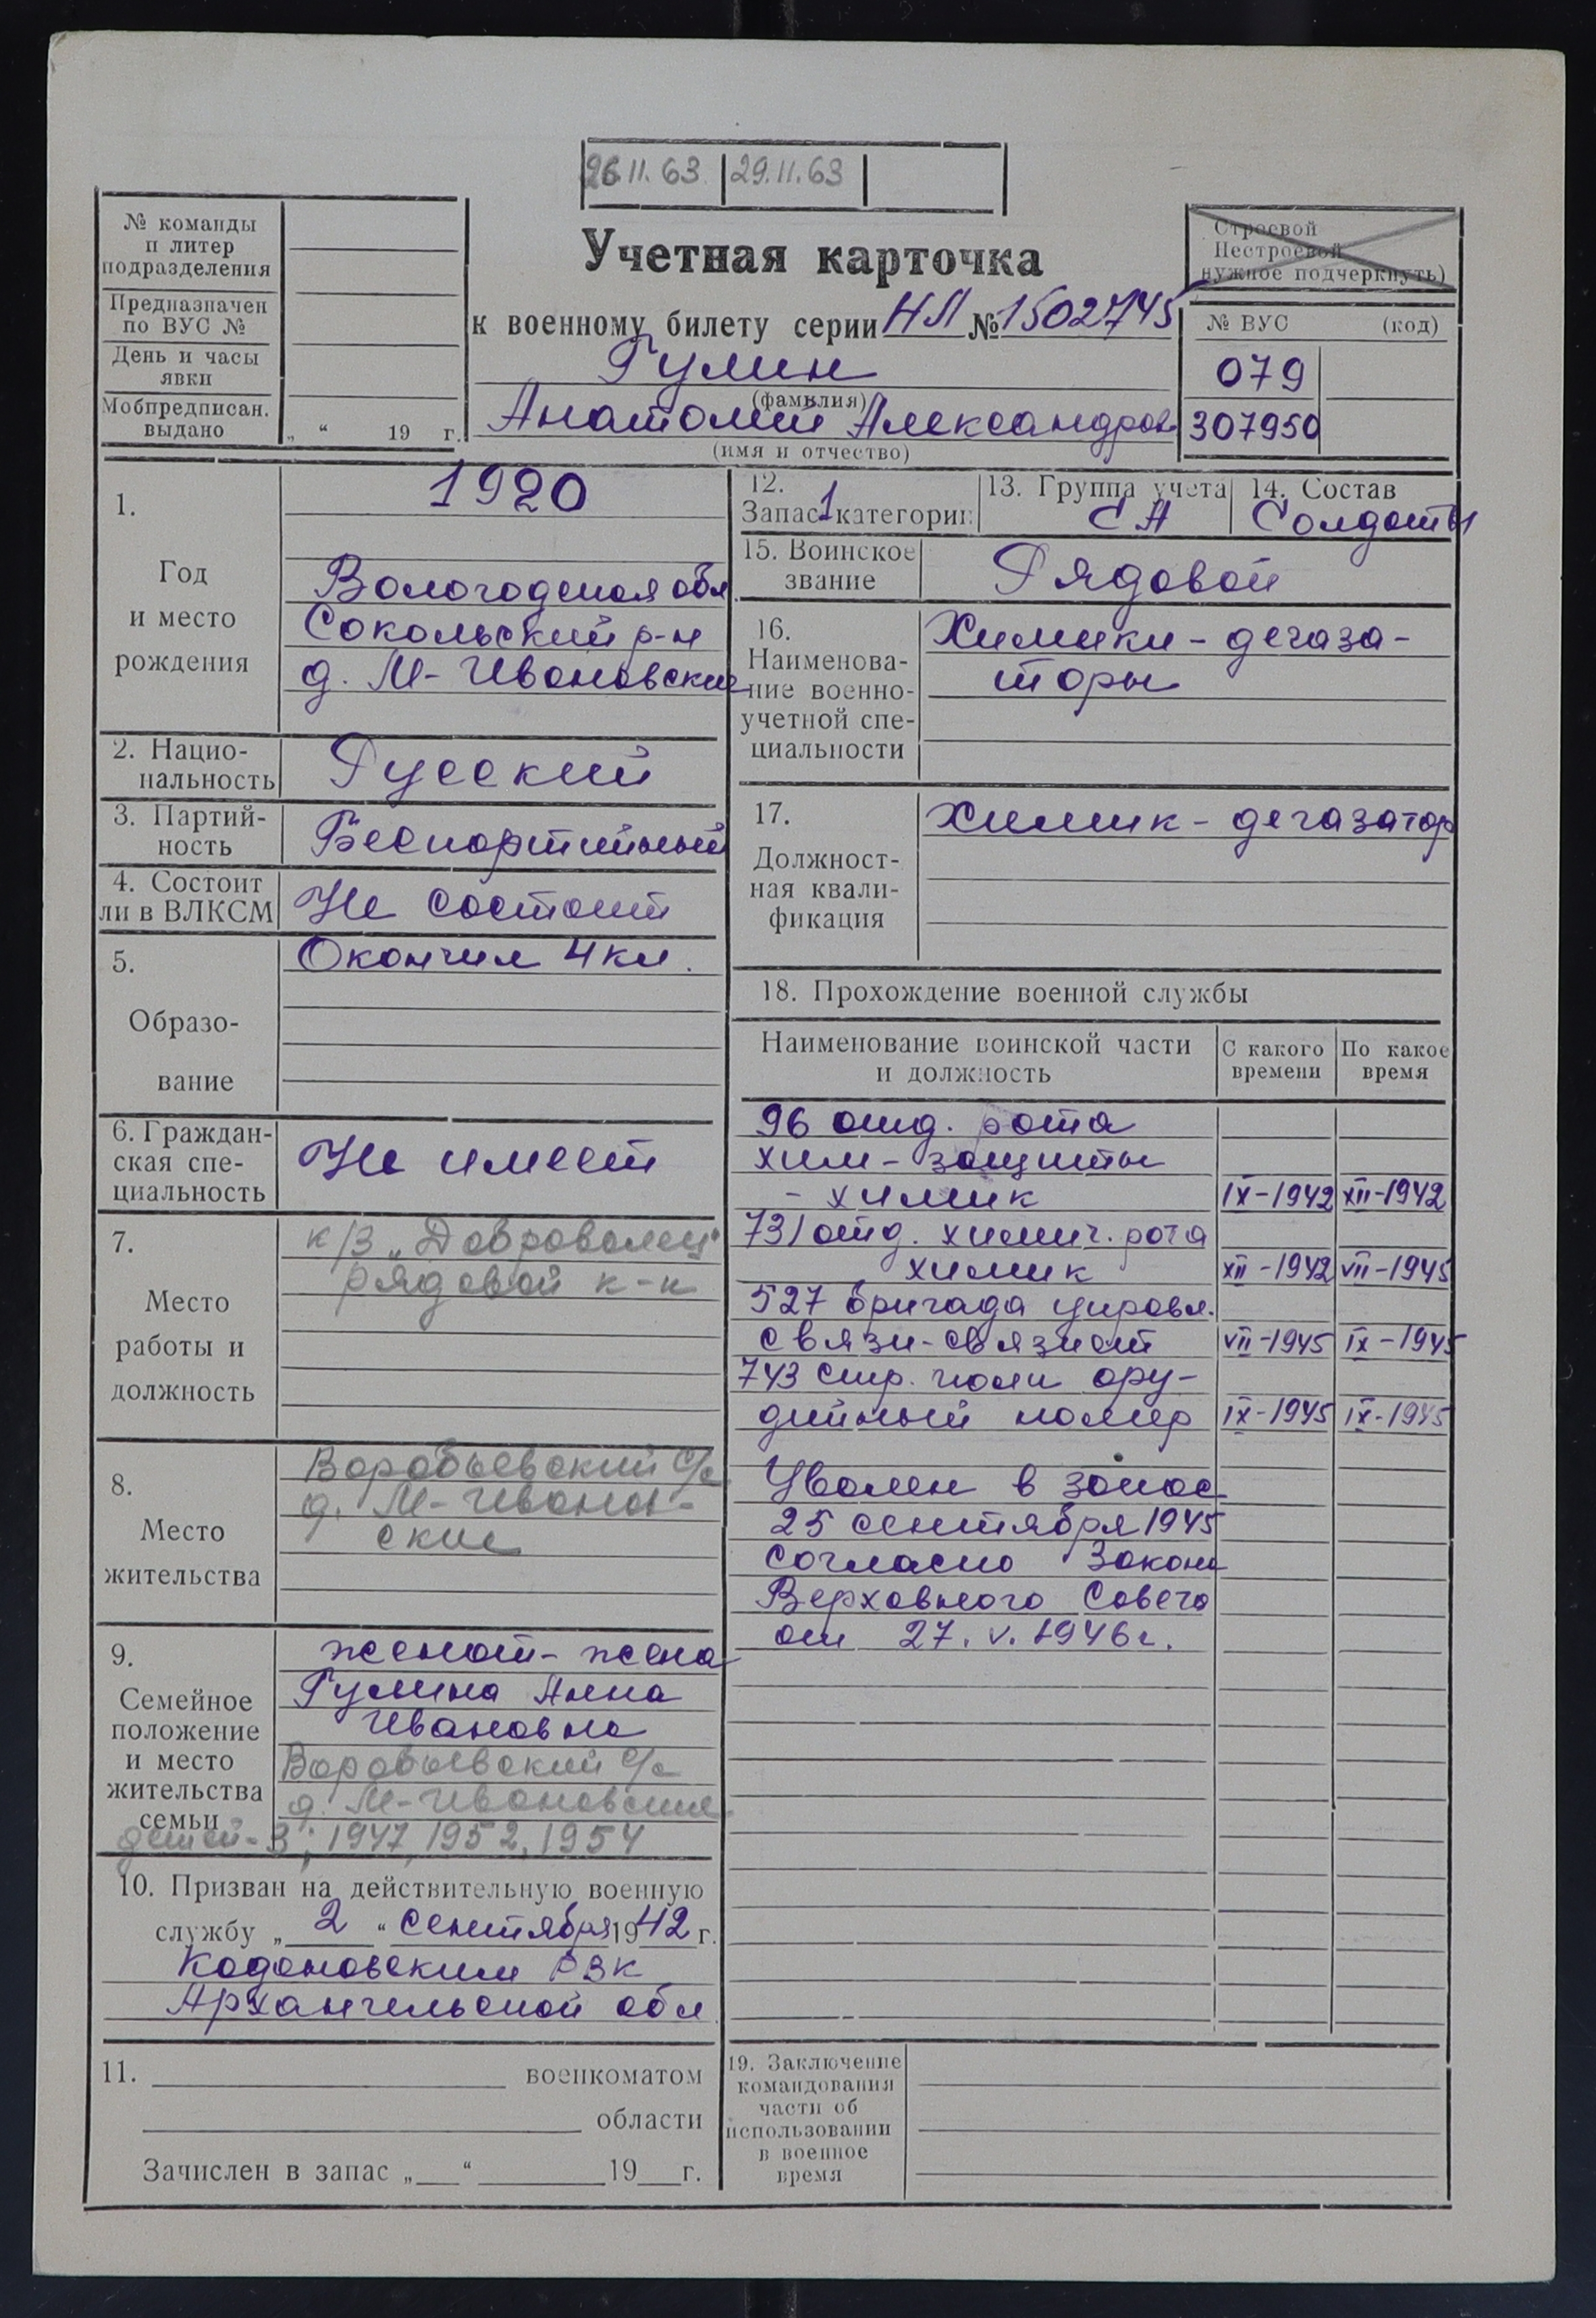 26.11.63. 29.11.63
№ команды
и литер
подразделения
Предназначен
по ВУС №
День и часы
явки
Мобпредписан.
выдано „ “ 19 г.
Учетная карточка
к военному билету серии НЛ № 1502745
Гулин
(фамилия)
Анатолий Александров.
(имя и отчество)
Строевой
Нестроевой
нужное подчеркнуть)
№ ВУС (код)
079
307950
1.
Год
и место
рождения
1920
Вологодская обл
Сокольский р-н
д. М-Ивановские
2. Нацио-
нальность
Русский
3. Партий-
ность
Беспартийный
4. Состоит
ли в ВЛКСМ
Не состоит
5.
Образо-
вание
Окончил 4 кл.
6. Граждан-
ская спе-
циальность
Не имеет
7.
Место
работы и
должность
к/з „Доброволец“
рядовой к-к
8.
Место
жительства
Воробьевский с/с
д. М-Иванов-
ские
9.
Семейное
положение
и место
жительства
семьи
женат - жена
Гулина Анна
Ивановна
Воробьевский с/с
д. М-Ивановские
детей-3; 1947, 1952, 1954
10. Призван на действительную военную
службу „2“ сентября 1942 г.
РВК
Архангельской обл
11. военкоматом
области
Зачислен в запас „ “ 19 г.
12.
Запас 1 категории
13. Группа учета
СА
14. Состав
Солдаты
15. Воинское
звание
Рядовой
16.
Наименова-
ние военно-
учетной спе-
циальности
Химики-дегаза-
торы
17.
Должност-
ная квали-
фикация
Химик-дегазатор
18. Прохождение военной службы
Наименование воинской части
и должность
С какого
времени
По какое
время
96 отд. рота
хим-защиты
- химик IX-1942 XII-1942
731 отд. химич. рота
химик XII-1942 VII-1945
527 бригада управл.
связи-связист VII-1945 IX-1945
743 стр. полк ору-
дийный номер IX-1945 IX-1945
Уволен в запас
25 сентября 1945
согласно Закона
Верховного Совета
от 27.V.1946г.
19. Заключение
командования
части об
использовании
в военное
время